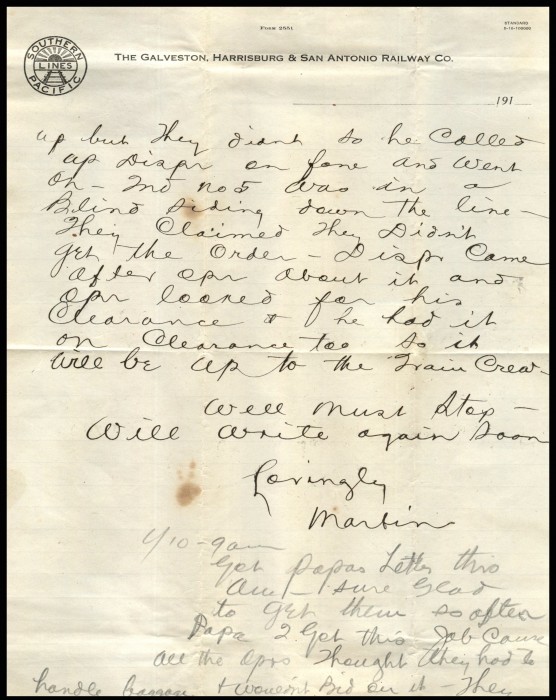 FORM 2551
STANDARD
SOUTHERN PACIFIC
LINES
THE GALVESTON, HARRISBURG & SAN ANTONIO RAILWAY CO.
191
up but They didnt so he Called
up Dispr on fone and went
on - 2nd no 5 was in a
Blind siding down the line -
They Claimed They Didn't
get the Order - Dispr Came
after opr about it and
opr looked for his
Clearance & he had it
on Clearance too so it
Will be up to the Train Crew -
Well Must Stop -
Will Write again soon
Lovingly
Martin
1/10 - 9am
Got Papas Letter this
am - sure Glad
to get them so often
Papa I Got this Job Cause
all the oprs Thought they had to
handle baggage & wouldn't Bid on it - They